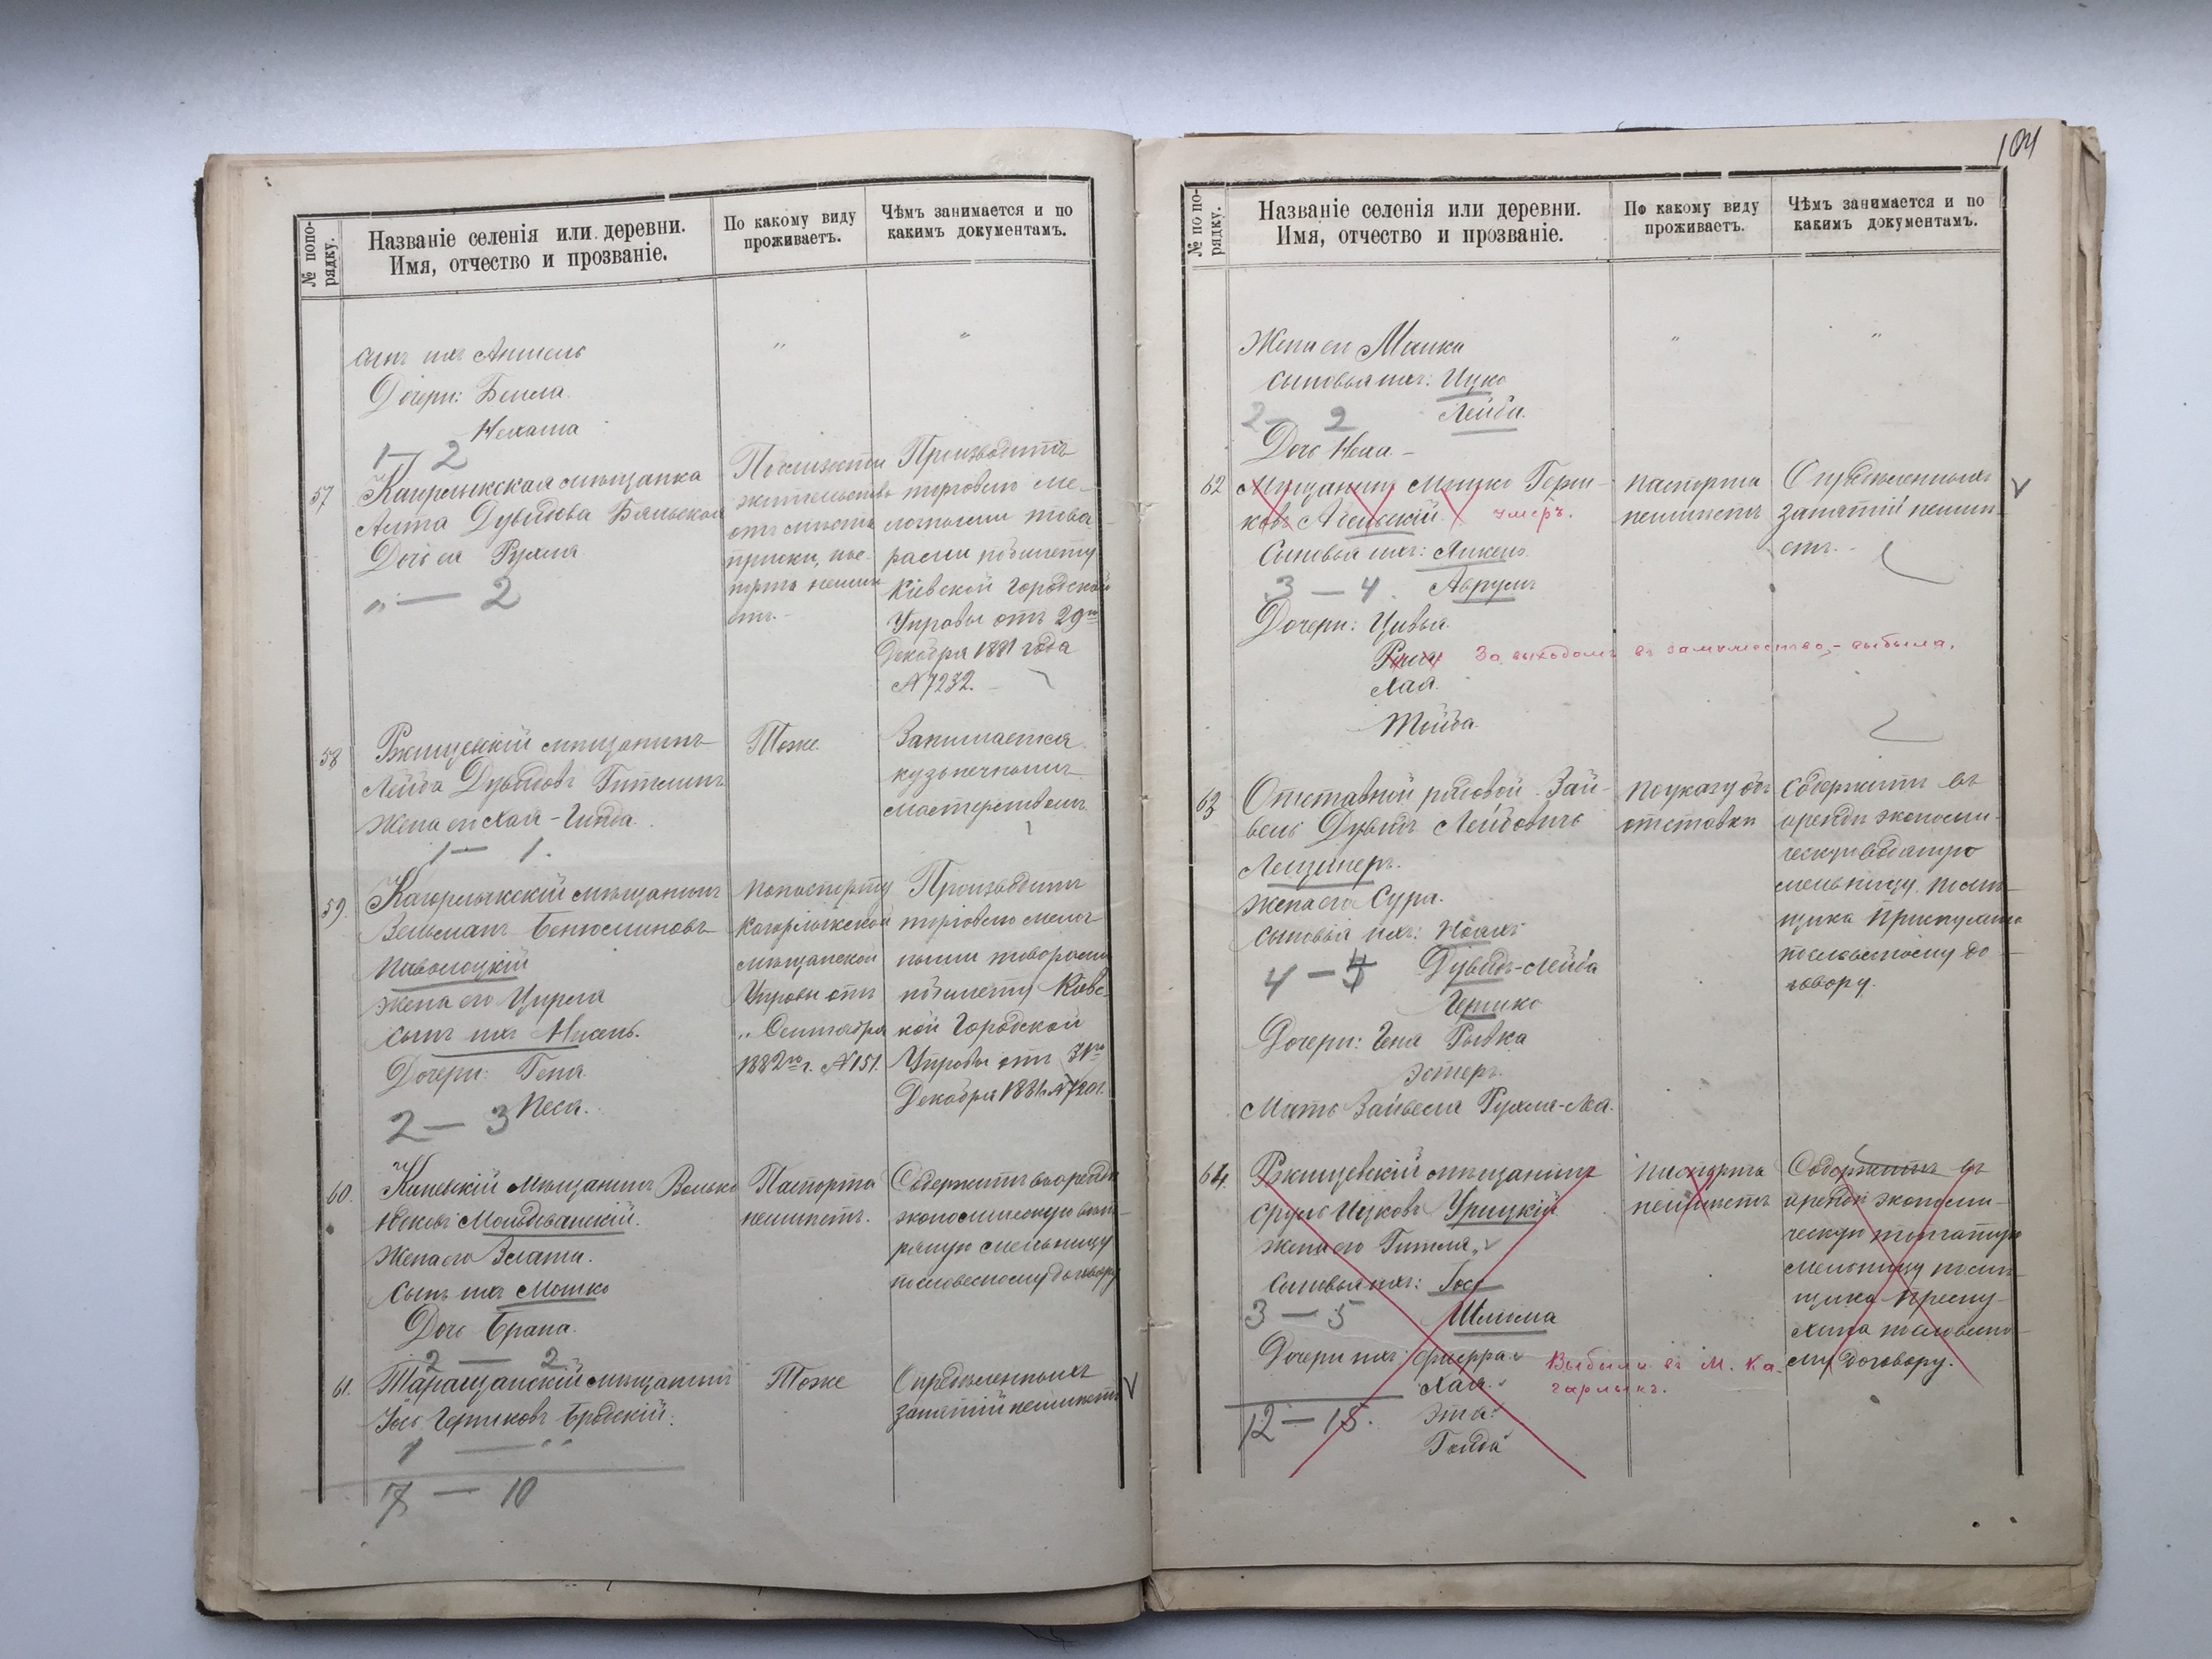 № попо-
рядку.
Названіе селенія или деревни.
Имя, отчество и прозваніе.
По какому виду
проживаетъ.
Чѣмъ занимается и по
какимъ документамъ.
сынъ ихъ
Дочери: Бейла
"
"
1 — 2
57
Кагарлыкская мѣщанка
Дувидова
Дочь ея Рухля
" — 2
жительства
отъ
приски, пас-
порта неимѣ
етъ.
Производитъ
торговлю ме-
лочными това
рами побилету
Кіевской Городской
Управы отъ 29го
Декабря 1881 года
№ 7232.
58
Ржищевскій мѣщанинъ
Лейба Дувидовъ Гитлинъ
Жена его Хая-Гинда.
1 — 1.
Тоже
Занимается
кузнечнымъ
мастерствомъ
59.
Кагарлыкскій мѣщанинъ
Вельманъ Бенюминовъ
Паволоцкій
Жена его Цирля
сынъ ихъ
Дочери: Геня.
Песя.
2 — 3
попаспорту
Кагарлыкской
мѣщанской
Управы отъ
" Сентября
1882го г. № 151.
Производитъ
торговлю мелоч
ными товарами
побилету Кіевс-
кой Городской
Управы отъ
Декабря 1881
60.
Каневскій Мѣщанинъ Волько
Мольдованскій.
Жена его Злата.
Сынъ ихъ Мошко
Дочь Брана.
2 — 2
Паспорта
неимѣетъ.
Содержитъ въ арендѣ
экономическую вѣт-
ряную мельницу
пословесному договору
61.
Таращанскій мѣщанинъ
Іось Гершковъ Бродскій.
1 — "
7 — 10
Тоже
Опредѣленныхъ
занятій неимѣетъ
104
№ по по-
рядку.
Названіе селенія или деревни.
Имя, отчество и прозваніе.
По какому виду
проживаетъ.
Чѣмъ занимается и по
какимъ документамъ.
Жена его Малка
сыновья ихъ: Ицко
2 — 2 Лейба.
Дочь
"
"
62
Мѣщанинъ Мошко Герш-
ковъ умеръ.
Сыновья ихъ:
3 — 4. Аврумъ
Дочери: Цивья.
За выходомъ въ замужество, - выбыла.
Хая.
Тойба.
паспорта
неимѣетъ
Опредѣленныхъ
занятій неимѣ
етъ.
63
Отставной рядовой Зай-
вель Дувидъ Лейбовичъ
Лещинеръ.
Жена его Сура.
Сыновья ихъ:
4 — 5 Дувидъ-Лейба
Гершко
Дочери: Геня Рывка
Эстеръ.
Мать Зайвеля Рухля-Лея.
поуказу объ
отставки
Содержитъ въ
арендѣ экономи-
ческую водяную
мельницу помѣ-
щика
пословесному до-
говору.
64.
Ржищевскій мѣщанинъ
Сруль Ицковъ Урицкій
Жена его Гитля.
Сыновья ихъ: Іось
3 — 5 Шлёма
Дочери ихъ:
Хая.
12 — 15. Эта.
Голда
Выбыли въ М. Ка-
гарлыкъ.
паспорта
неимѣетъ
Содержитъ въ
арендѣ экономи-
ческую топчатую
мельницу помѣ-
щика
пословесно-
му договору.